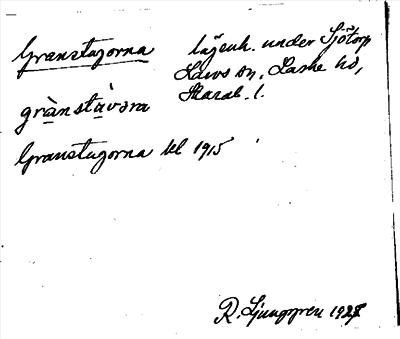 Granstugorna lägenh. under Sjötorp
Larvs sn, Laske hd,
Skarab. l.
grànstàvora
Granstugorna kl 1915
R. Ljunggren 1927